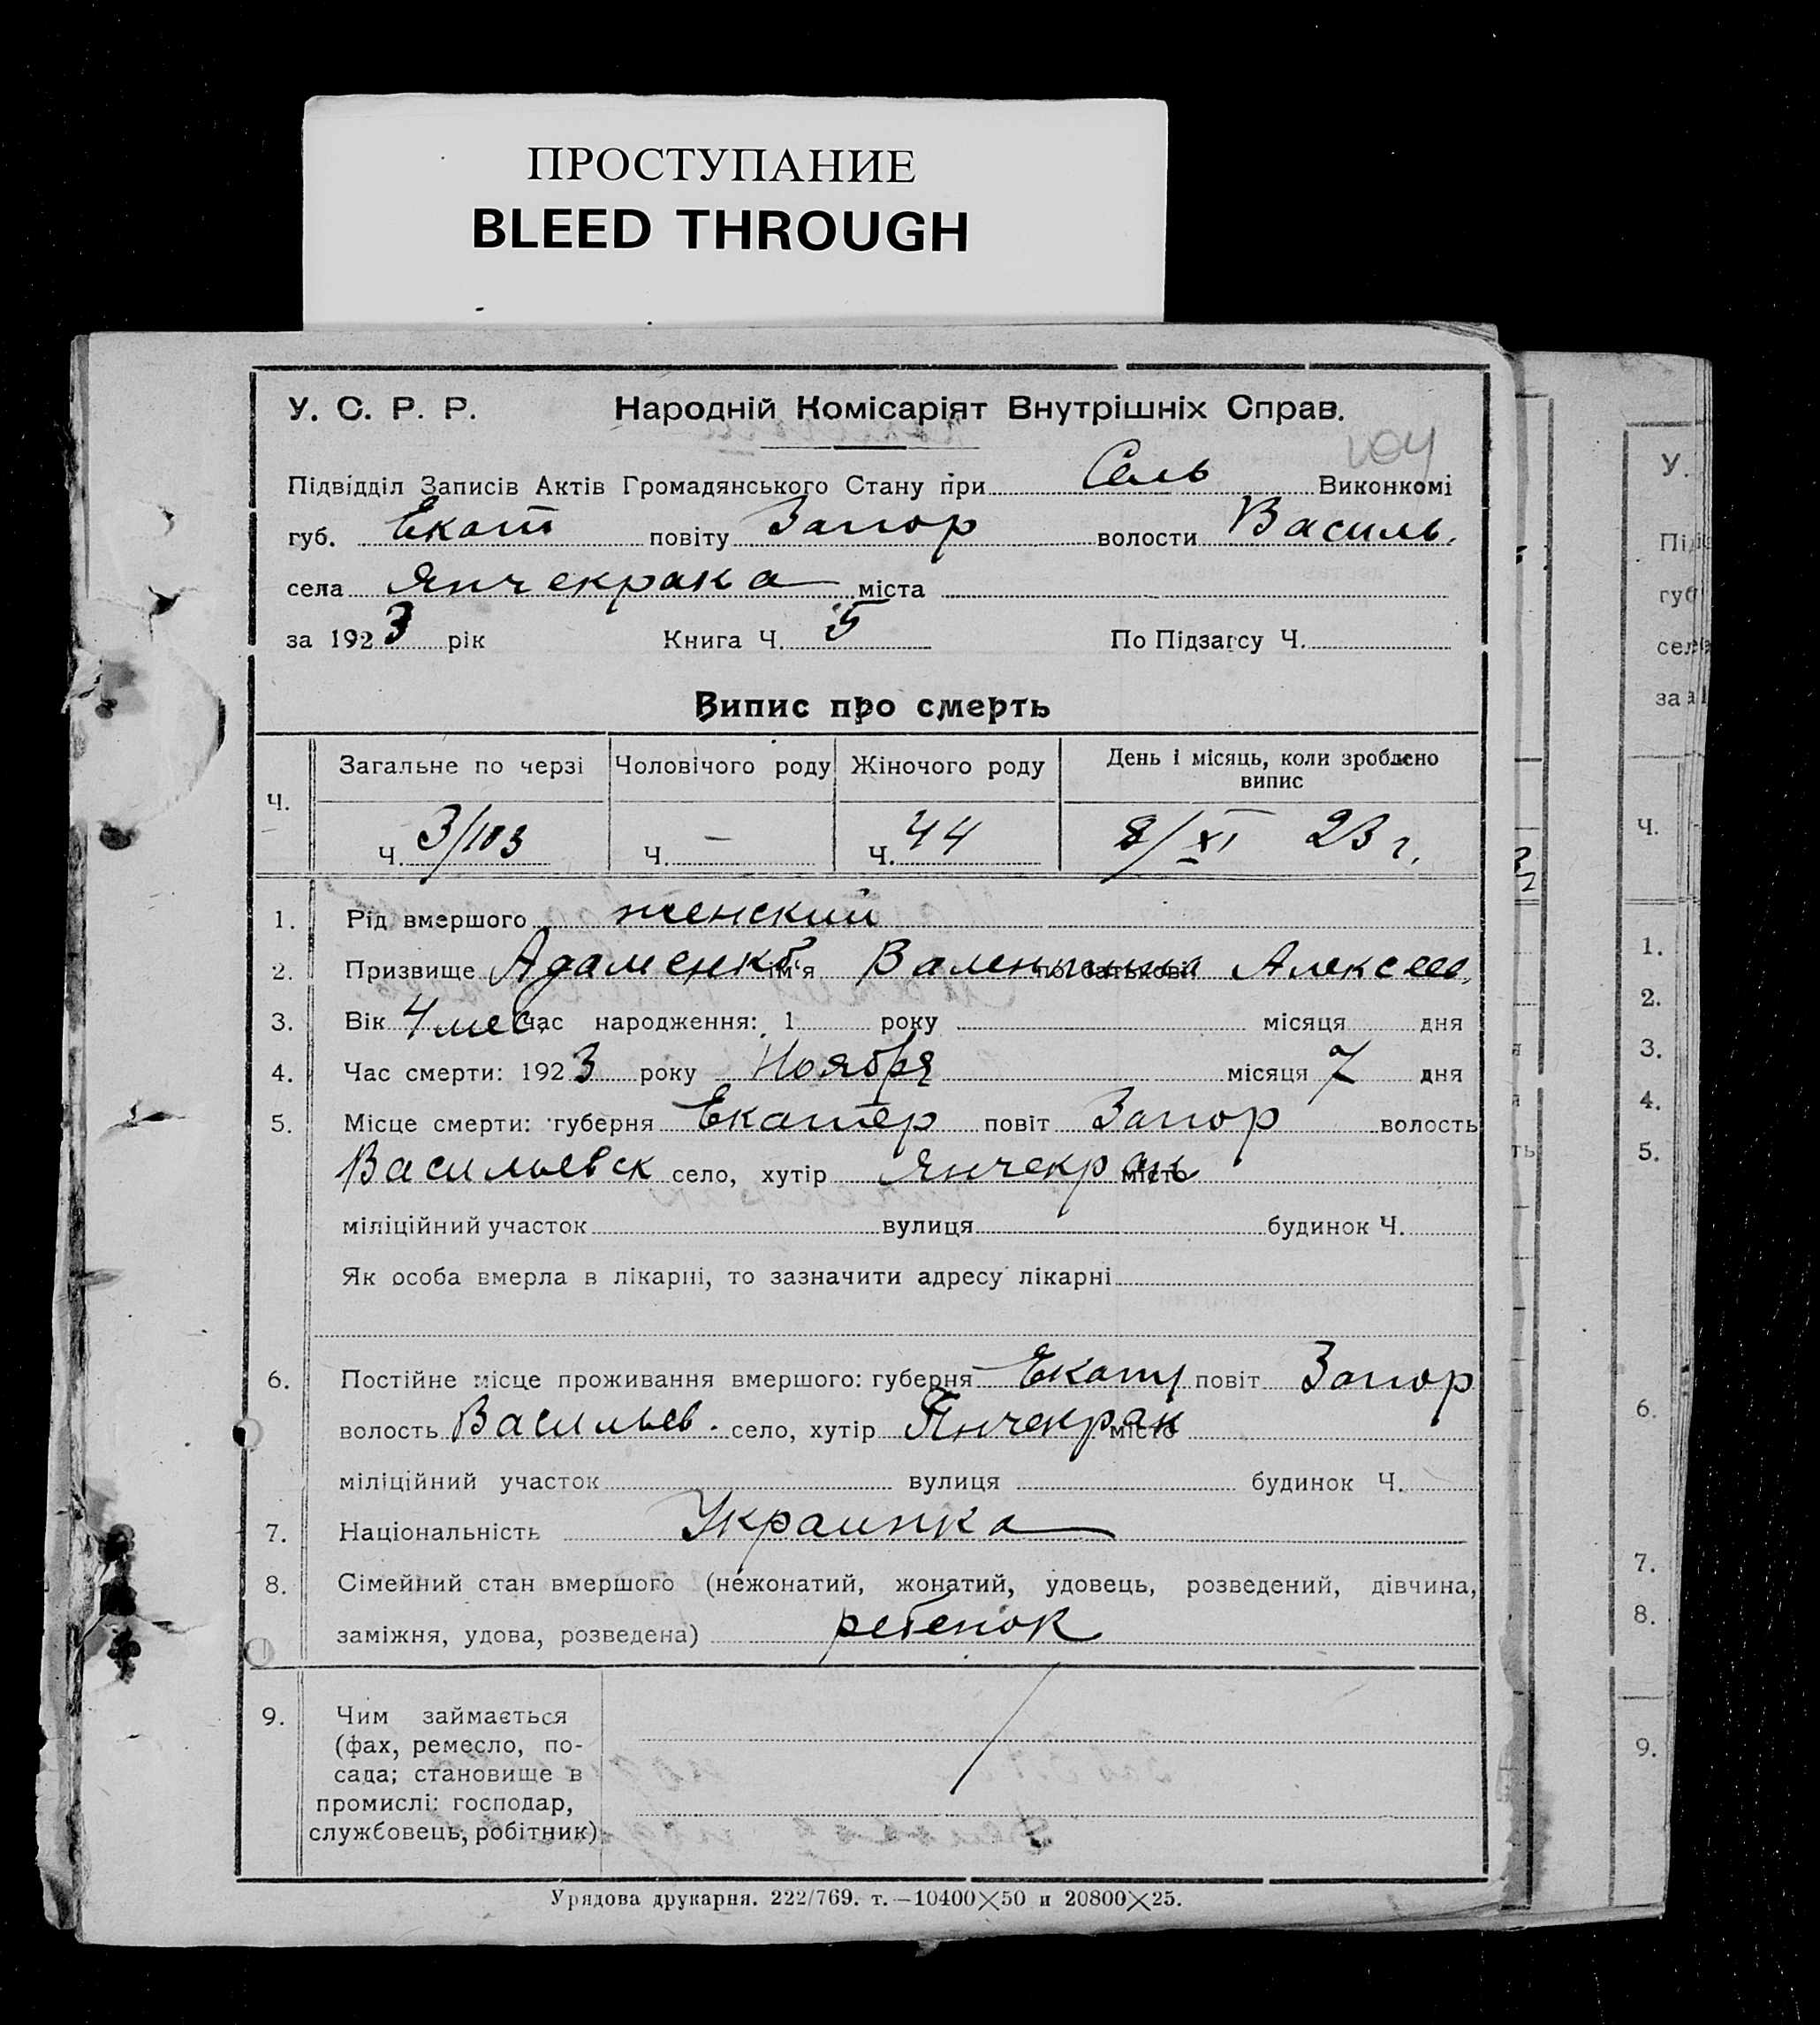 ПРОСТУПАНИЕ
BLEED THROUGH
У. С. Р. Р. Народній Комісаріят Внутрішніх Справ.
104
Підвідділ Записів Актів Громадянського Стану при Сель Виконкомі
губ. Екат повіту Запор волости Василь.
села Янчекрака міста
за 1923 рік Книга Ч. 5 По Підзагсу Ч.
Випис про смерть
Ч. Загальне по черзі Чоловічого роду Жіночого роду День і місяць, коли зроблено випис
Ч. 3/103 Ч. — Ч. 44 8/XI 23 г.
1. Рід вмершого женский
2. Призвище Адаменко ім'я Валентина по батькові Алексеев.
3. Вік 4 мес. час народження: 1 року місяця дня
4. Час смерти: 1923 року Ноября місяця 7 дня
5. Місце смерти: губерня Екатер повіт Запор волость
Васильевск село, хутір Янчекрак місто
міліційний участок вулиця будинок Ч.
Як особа вмерла в лікарні, то зазначити адресу лікарні
6. Постійне місце проживання вмершого: губерня Екат повіт Запор
волость Васильев. село, хутір Янчекрак місто
міліційний участок вулиця будинок Ч.
7. Національність Украинка
8. Сімейний стан вмершого (нежонатий, жонатий, удовець, розведений, дівчина,
заміжня, удова, розведена) ребенок
9. Чим займається
(фах, ремесло, по-
сада; становище в
промислі: господар,
службовець, робітник)
Урядова друкарня. 222/769. т.—10400×50 и 20800×25.
У.
губ
за
Ч.
1.
2.
3.
4.
5.
6.
7.
8.
9.